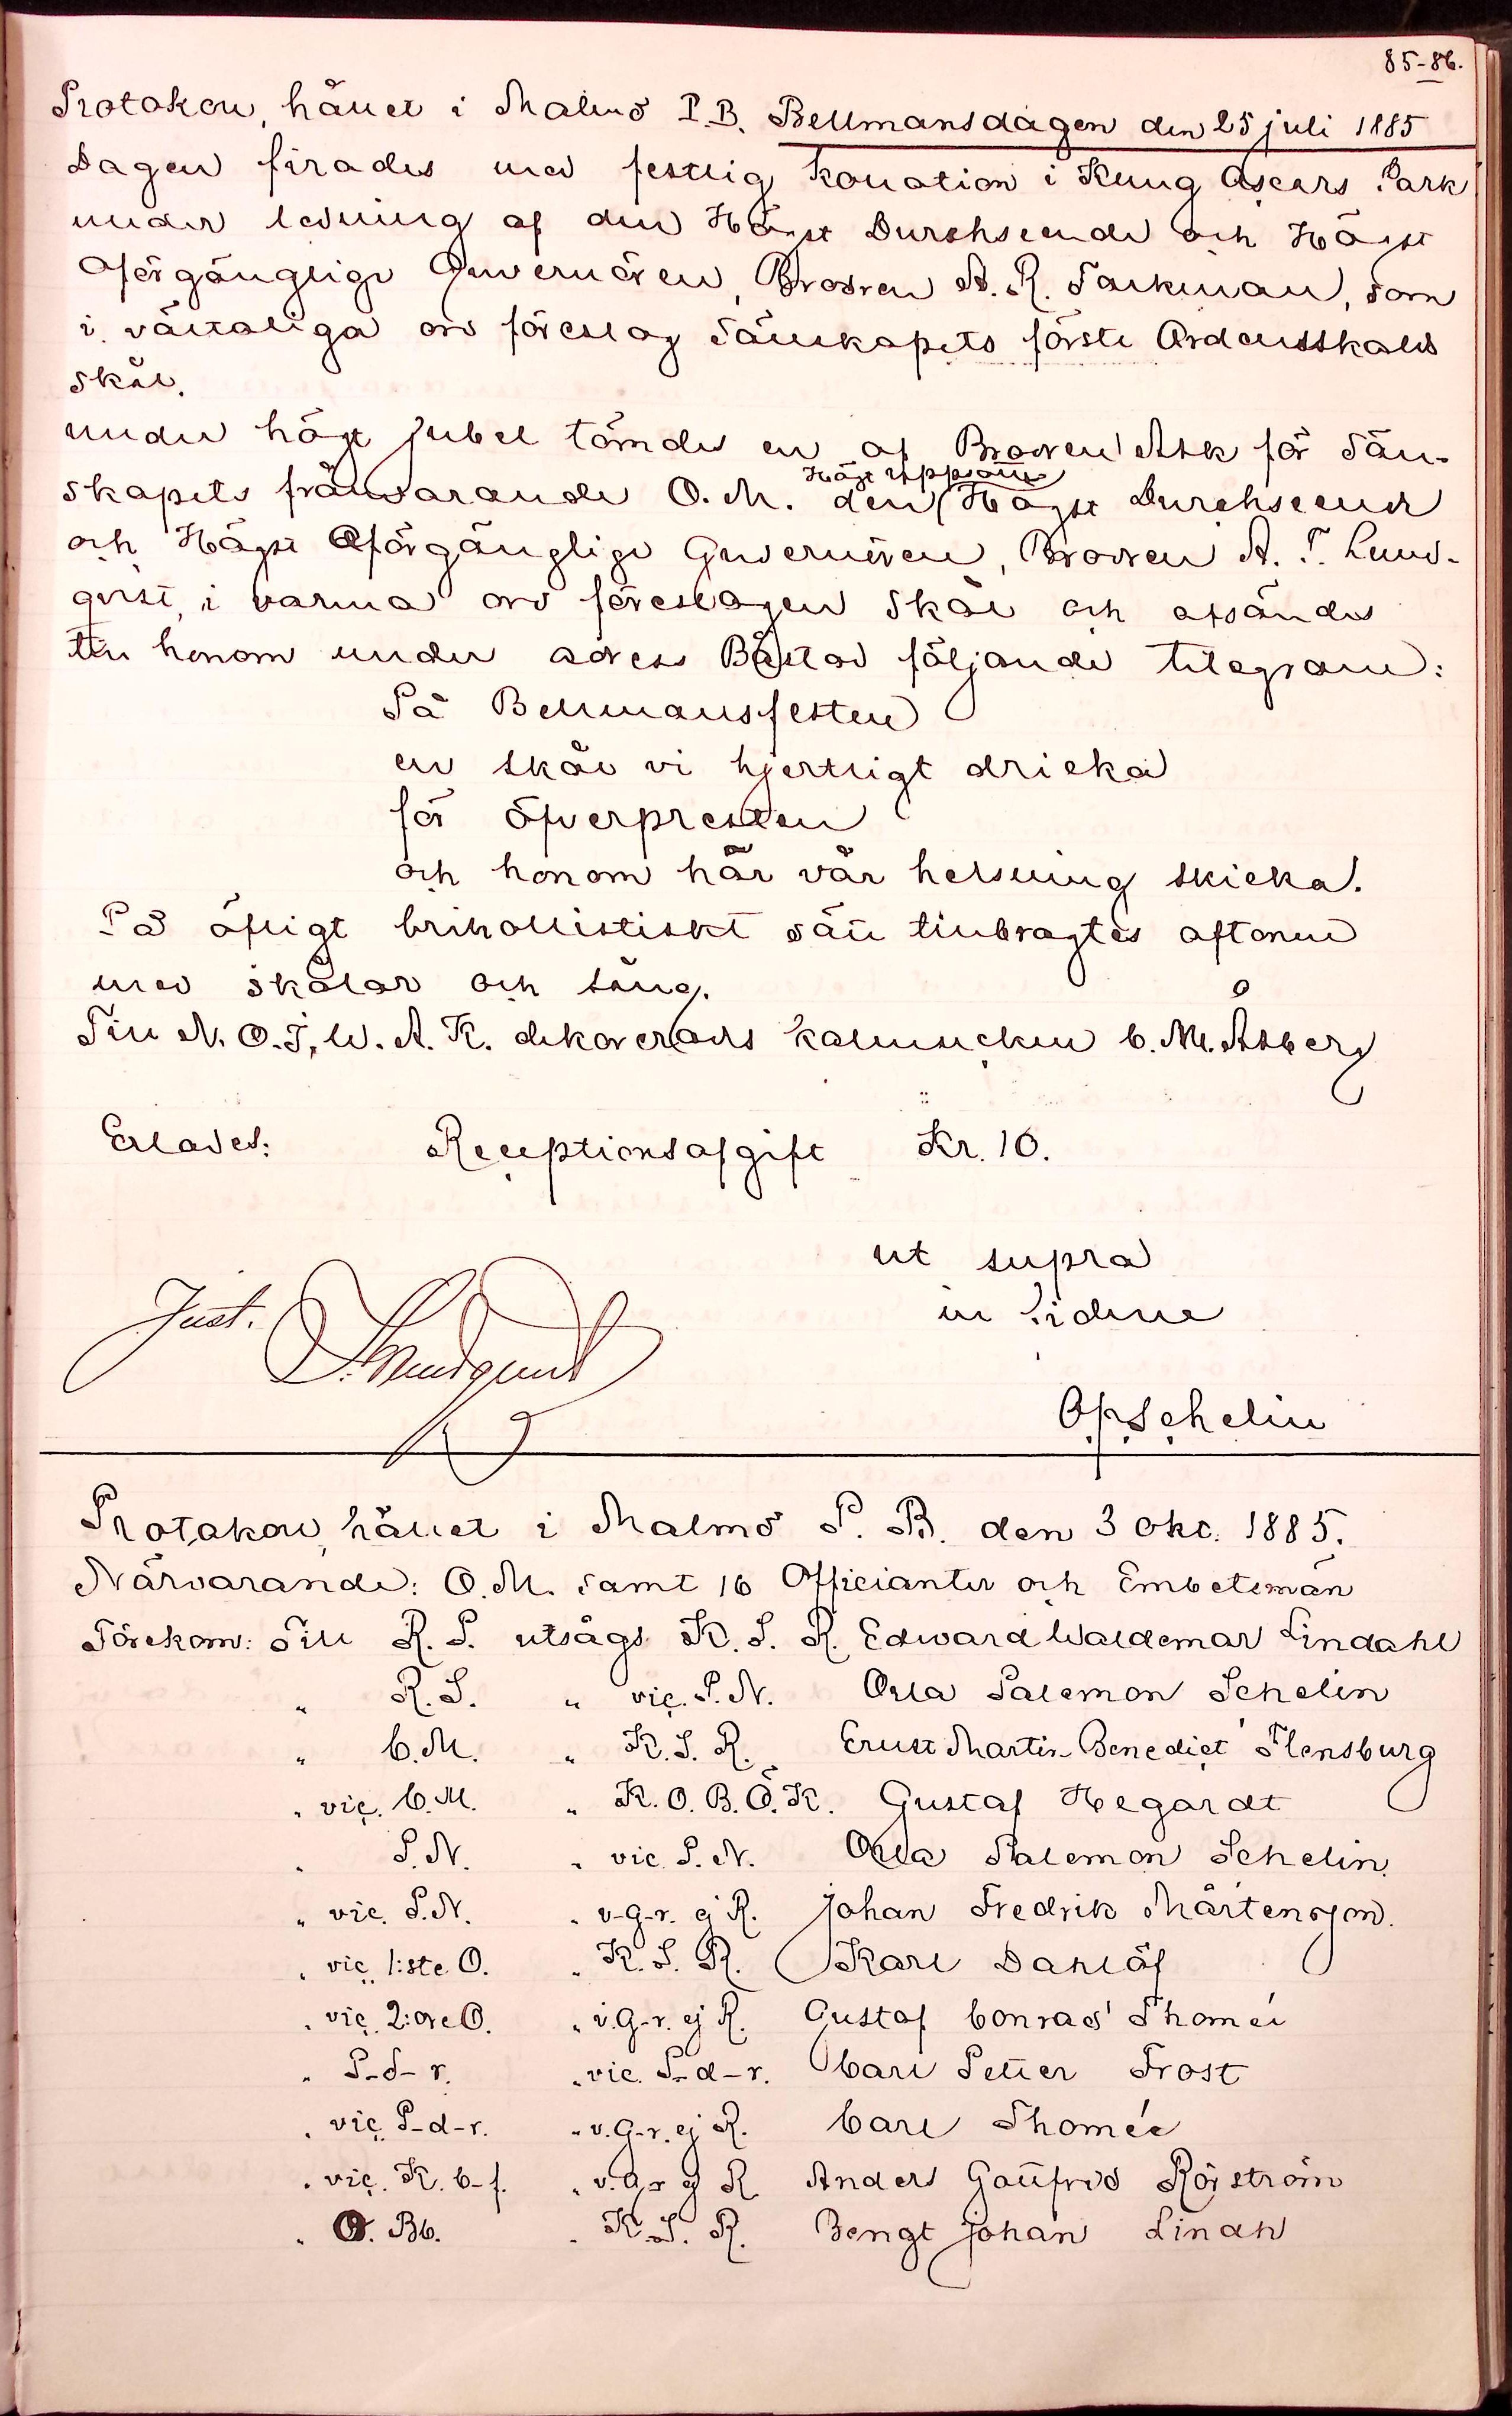 85-86.
Protokoll, hållet i Malmö P.B. Bellmansdagen den 25 juli 1885
Dagen firades med festlig kollation i Kung Oscars Park
under ledning af den Högst Durchseende och Högst
Oförgänglige Guvernören, Brodren A. R. Falkman, som
i vältaliga ord föreslog Sällskapets förste Ordensskalds
skål.
under högt jubel tömdes en af Brodren Ask för Säll-
skapets frånvarande O. M. den Högt Uppsatte Högst Durchseende
och Högst Oförgänglige Guvernören, Brodren A. T. Lund-
qvist, i varma ord föreslagen skål och afsändes
till honom under adress Båstad följande telegram:
På Bellmansfesten
en skål vi hjertligt dricka
för öfverpresten
och honom här vår helsning skicka.
På öfligt brikollistiskt sätt tillbragtes aftonen
med skålar och sång.
Till N. O. J. W. A. K. dekorerades kalmucken C. M. Åsberg
Erlades: Receptionsafgift Kr. 10.
ut supra
in fidem
Just. Lundquist
O.P. Schelin
Protokoll, hållet i Malmö P. B. den 3 Okt. 1885.
Närvarande: O.M. samt 16 Officianter och Embetsmän
Förekom: Till R. P. utsågs K. S. R. Edward Waldemar Lindahl
" R. S. " vic. P. N. Orla Palemon Schelin
" C. M. " K. S. R. Ernst Martin Benedict Flensburg
" vic. C. M. " K. O. B. Ö. K. Gustaf Hegardt
" P. N. " vic. P. N. Orla Palemon Schelin.
" vic. P. N. " v-G-r. ej R. Johan Fredrik Mårtensson.
" vic. 1:ste O. " K. S. R. Karl Dahlöf
" vic. 2:dre O. " v. G-r. ej R. Gustaf Conrad Thomée
" P-d-r. " vic. P-d-r. Carl Petter Frost
" vic. P-d-r. " v. G-r. ej R. Carl Thomée
" vic. K. C-f. " v. G-r ej R Anders Gottfrid Rörström
" O. Bb. " K. S. R. Bengt Johan Lindh